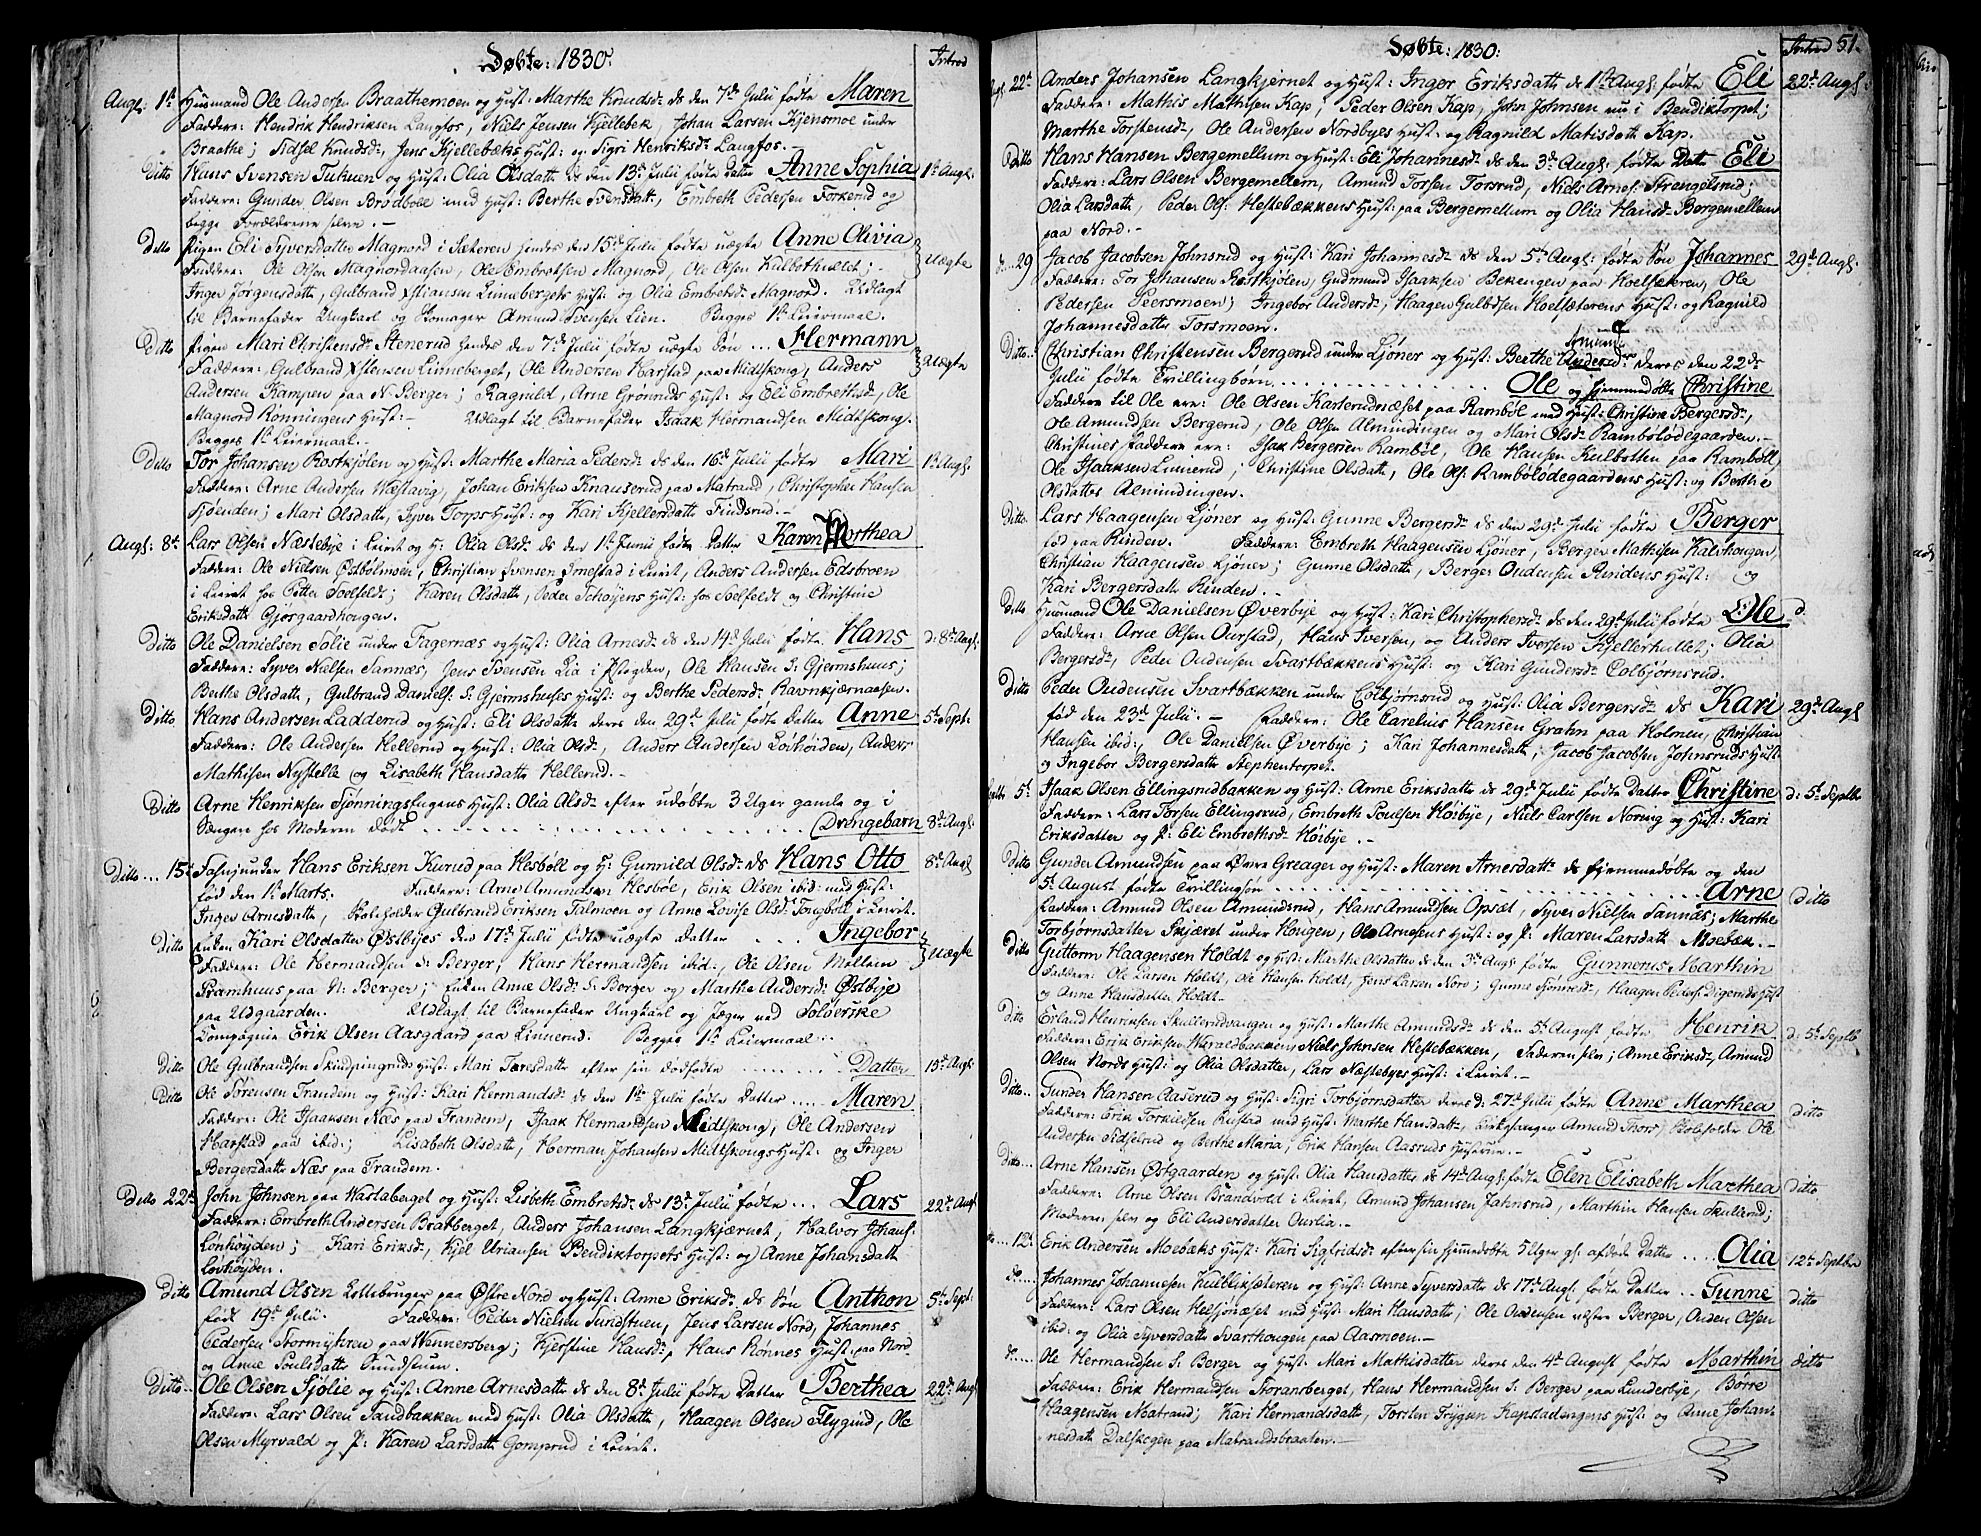 Døbte: 1830.
Introd
Augl: 1st Huusmand Ole Andersen Braathemoen og Hust: Marthe Knudsdr ds den 7de Julii fødte Maren
Faddere: Hendrik Hendriksen Langfos, Niels Jensen Kjellebek, Johan Larsen Kjensmoe under
Braathe; Sidsel Knudsdr, Jens Kjellebæks Hust: og Sigri Henriksdr Langfos. -
Ditto Hans Svensen og Hust: Olia Olsdatter ds den 13de Julii fødte Datter Anne Sophia 1st Augl:
Faddere: Gunder Olsen Brødbøll med Hust: Berthe Svensdatr, Embreth Pedersen Forkerud og
begge Forældrene selve. -
Ditto Pigen Eli Syversdatter Magnord i Sæteren hendes den 15de Julii fødte uægte Anne Olivia
Faddere: Ole Olsen Magnordaasen, Ole Embretsen Magnord, Ole Olsen Kulbothullet; - Uægte
Inger Jørgensdatter, Gulbrand Xstiansen Linnebergets Hust: og Olia Embretsdr Magnord. Udlagt
til Barnefader Ungkarl og Skomager Amund Svensen Lien. Begges 1ste Leiermaal.
Ditto Pigen Mari Christensdr Stenerud hendes den 7de Julii fødte uægte Søn ... Hermann
Faddere: Gulbrand Xstensen Linneberget, Ole Andersen Harstad paa Midtskong, Anders Uægte
Andersen Kampen paa N. Berger; Ragnild, Arne Grønnerds Hust: og Eli Embrethsdr, Ole
Magnord Rønningens Hust: - Udlagt til Barnefader Isaak Hermandsen Midtskong.
Begges 1st Leiermaal. -
Ditto Tor Johansen Rostkjølen og Hust: Marthe Maria Pedersdr ds den 16de Julii fødte Mari 1st Augl:
Faddere: Arne Andersen Wæstavig, Johan Eriksen Knauserud paa Matrand, Christopher Hansen
; Mari Olsdatter, Syver Torps Hust: og Kari Kjellersdatter Findsrud. -
Augl: 8de Lars Olsen Næstebye i Leiret og H: Olia Olsdr ds den 1st Junii fødte Datter Karen Morthea
Faddere: Ole Nielsen Østbølmoen, Christian Svensen Imestad i Leiret, Anders Andersen Edsbroen
i Leiret hos Petter Soelfeldt; Karen Olsdatter, Peder Schøjens Hust: hos Soelfeldt og Christine
Eriksdatter Gjørgaardhougen.
Ditto Ole Danielsen Solie under Fagernæs og Hust: Olia Arnesdr ds den 14de Julii fødte Hans d: 8de Augl:
Faddere: Syver Nielsen Sannæs, Jens Svensen Lia i Skogden, Ole Hansen S: Gjermshuus;
Berthe Olsdatter, Gulbrand Danielf. S: Gjermshuses Hust: og Berthe Pedersdr Ravnkjærnaasen.
Ditto Hans Andersen Ladderud og Hust: Eli Olsdatter deres den 29de Julii fødte Datter Anne 5te Septr:
Faddere: Ole Andersen Hellerud og Hust: Olia Olsdr, Anders Andersen Løvhøiden, Anders
Mathisen Nystelle og Lisabeth Hansdatter Hellerud. -
Ditto Arne Henriksen Tjønningshugens Hust: Olia Olsdr efter udøbte 3 Uger gamle og i
Sængen hos Moderen døde ... Drengebarn 8de Augl:
Ditto ... 15de Hans Eriksen Kurud paa Hesbøll og H: Gunnild Olsdr ds Hans Otto 8de Augl
fød den 1st Marts. Faddere: Arne Amundsen Hesbøl, Erik Olsen ibid: med Hust:
Inger Arnesdatter, Boleholder Gulbrand Eriksen Talmoen og Anne Lovise Olsdr Tongbøll i Leiret.
Ditto Kari Olsdatter Østbyes den 17de Julii fødte uægte Datter ... Ingebor
Faddere: Ole Hermandsen S: Berger, Hans Hermandsen ibid:, Ole Olsen Mellem Uægte
Framhuus paa N: Berger; Enken Anne Olsdr S: Berger og Marthe Andersdr: Østbye
paa Udgaarden. Udlagt til Barnefader Ungkarl og Jæger ved Solverske
Compagnie Erik Olsen Aasgaard paa Linnerud. Begges 1st Leiermaal. -
Ditto Ole Gulbrandsen Skindpingruds Hust: Mari Toresdatter efter sin dødfødte ... Datter 15de Augl
Ditto Ole Sørensen Trandem og Hust: Kari Hermandsdr ds den 1st Julii fødte Datter ... Maren
Faddere: Ole Isaaksen Næs paa Trandem, Isaak Hermandsen Midtskong, Ole Andersen
Harstad paa ibid:; Lisabeth Olsdatter, Herman Johansen Midtskongs Hust: og Inger
Bergersdatter Næs paa Trandem.
Ditto 22de John Johnsen paa Wastaberget og Hust: Lisbeth Embretsdr ds 13de Julii fødte ... Lars 22de Augl
Faddere: Embreth Andersen Bratberget, Anders Johansen Langkjærnet, Halvor Johanf:
Lønhøyden; Kari Eriksdr, Kjel Uriansen Bendiktorpets Hust: og Anne Johansdatter
Lovhøyden.
Ditto Amund Olsen Lottebruger paa Østre Nord og Hust: Anne Eriksdr ds Søn Anthon 5te Sept:
født 19de Julii. Faddere: Peder Nielsen Sundstuen, Jens Larsen Nord, Johannes
Pedersen Stormyhren paa Wennersberg; Kjerstine Hansdr, Hans Konnes Hust: paa Nord
og Anne Poulsdatter Sundstuen.
Ditto.. Ole Olsen Sjølie og Hust: Anne Arnesdatter ds den 8de Julii fødte Datter Berthea 22de Augl
Faddere: Lars Olsen Sandbakken med Hust: Olia Olsdatter, Haagen Olsen Flygind, Ole
Olsen Myrvald og P: Karen Larsdatter Gomprud i Leiret.
Døbte: 1830:
Introd 51.
Augl: 22de Anders Johansen Langkjernet og Hust: Inger Eriksdatter ds 1st Augl: fødte Eli 22de Augl:
Faddere: Mathis Mathisen Kap, Peder Olsen Kap, John Johnsen nu i Bendiktorpet;
Marthe Torstensdr, Ole Andersen Nordbyes Hust: og Ragnild Matisdatter Kap.
Ditto Hans Hansen Bergemellum og Hust: Eli Johannesdr ds den 3de Augl: fødte Datter Eli
Faddere: Lars Olsen Bergemellem, Amund Torsen Torsrud, Niels Arnes: Strengelsrud;
Olia Larsdatter, Peder Olf: Hestebækkens Hust: paa Bergemellum og Olia Hansdr Bergemellem
paa Nord. -
d. .. 29 Jacob Jacobsen Johnsrud og Hust: Kari Johannesdr ds den 5te Augl: fødte Søn Johannes 29de Augl:
Faddere: Tor Johansen Rostkjølen, Gudmund Isaaksen Bekengen paa Hoelsæteren, Ole
Pedersen Peersmoen; Ingebor Andersdr, Haagen Gulbrsen Hoelsæterens Hust: og Ragnild
Johannesdatter Torsmoen.
Ditto.. Christian Christensen Bergerud under Ljøner og Hust: Berthe Andersdr deres den 22de
Julii fødte Tvillingbørn ... Ole og hjemmedøbte Christine
Faddere til Ole ere: Ole Olsen Karterudnæset paa Rambøl med Hust: Christine Bergersdr,
Ole Amundsen Bergerud, Ole Olsen Almindingen og Mari Olsdr Rambølødegaarden. -
Christines Faddere ere: Isak Bergersen Rambøl, Ole Hansen Kulbotten paa Rambøll,
Ole Isaaksen Linnerud; Christine Olsdatter, Ole Olf: Rambølødegaardens Hust: og Berthe
Olsdatter Almindingen.
Ditto Lars Haagensen Ljøner og Hust: Gunne Bergersdr ds den 29de Julii fødte Berger
fød paa Rinden. Faddere: Embreth Haagensen Ljøner, Berger Mathisen Kalvhougen,
Christian Haagensen Ljøner; Gunne Olsdatter, Berger Oudensen Rindens Hust: og
Kari Bergersdatter Rinden. -
Ditto Huusmand Ole Danielsen Øverbye og Hust: Kari Christophersdr ds den 29de Julii fødte Ole d.
Faddere: Arne Olsen Ourstad, Hans Iversen, og Anders Iversen Kjellerhullet; Olia
Bergersdr, Peder Oudensen Svartbækkens Hust: og Kari Gundersdr Colbjørnsrud.
Ditto Peder Oudensen Svartbækken under Colbjørnsrud og Hust: Olia Bergersdr ds Kari 29de Augl
fød den 23de Julii. - Faddere: Ole Carelius Hansen Grahn paa Holmen, Christian
Hansen ibid:, Ole Danielsen Øverbye; Kari Johannesdatter, Jacob Jacobsen Johnsruds Hust:
og Ingebor Bergersdatter Stephentorpet.
Septbr 5te Isaak Olsen Ellingsrudbakken og Hust: Anne Eriksdatter ds 29de Julii fødte Datter Christine d: 5te Septbr
Faddere: Lars Torsen Ellingsrud, Embreth Poulsen Høibye, Niels Carlsen Noring og Hust: Kari
Eriksdatter og P: Eli Embrethsdr Høibye. -
Ditto Gunder Amundsen paa Øvre Greager og Hust: Maren Arnesdatter ds hjemmedøbte og den
5te August fødte Tvillingsøn ... Arne Ditto
Faddere: Amund Olsen Amundsrud, Hans Amundsen Opsæt, Syver Nielsen Sannæs; Marthe
Torbjørnsdatter Skjæret under Hougen, Ole Arnesens Hust: og P: Maren Larsdatter Moebæk. -
Ditto Guttorm Haagensen Holdt og Hust: Marthe Olsdatter ds den 3de Augl: fødte Gunnerus Marthin
Faddere: Ole Larsen Holdt, Ole Hansen Holdt, Jens Larsen Nord; Gunne Simensdr, Haagen Pedersf: Digeruds Hust:
og Anne Hansdatter Holdt. -
Ditto Erland Henriksen Skullerudvangen og Hust: Marthe Amundsdr ds den 5te August fødte Henrik d: 5te Septb
Faddere: Erik Eriksen Weraldbakken, Niels Johnsen Hestebækken, Faderen selv; Anne Eriksdr, Amund
Olsen Nords Hust: og Olia Olsdatter, Lars Næstebyes Hust: i Leiret. -
Ditto.. Gunder Hansen Aaserud og Hust: Sigri Torbjørnsdatter deres d: 27de Julii fødte Anne Marthea ditto
Faddere: Erik Torkildsen Rustad med Hust: Marthe Hansdatter, Kirkesanger Amund Thors, Boleholder Ole
Andersen Sidselrud og Berthe Maria, Erik Hansen Aasruds Hustrue. -
Ditto... Arne Hansen Østgaarden og Hust: Olia Hansdatter ds 14de Augl: fødte Elen Elisabeth Marthea ditto
Faddere: Arne Olsen Brandvold i Leiret, Amund Johansen Jahnsrud, Marthin Hansen Skullerud;
Moderen selv og Eli Andersdatter Ourlia. -
.... 12te Erik Andersen Moebæks Hust: Kari Sigfridsdr efter sin hjemmedøbte 5 Uger gl: afdøde Datter .... Olia 12te Septbr
do .... Johannes Johannesen Kulbliksæteren og Hust: Anne Syversdatter ds 17de Augl: fødte Datter .. Gunne ditto
Faddere: Lars Olsen Helsjønæset med Hust: Mari Hansdatter; Ole Oudensen vestre Berger, Ouden Olsen
ibid: og Olia Syversdatter Svarthougen paa Aasmoen. -
do .... Ole Hermandsen S: Berger og Hust: Mari Mathisdatter deres den 4de August fødte Marthin ditto
Faddere: Erik Hermandsen Storansberget, Hans Hermandsen S: Berger paa Lunderbye, Børre
Haagensen Matrand; Kari Hermandsdatter, Torsten Trygsen Kapstadengens Hust: og Anne Johan-
nesdatter Dalskogen paa Matrandsbraaten. -